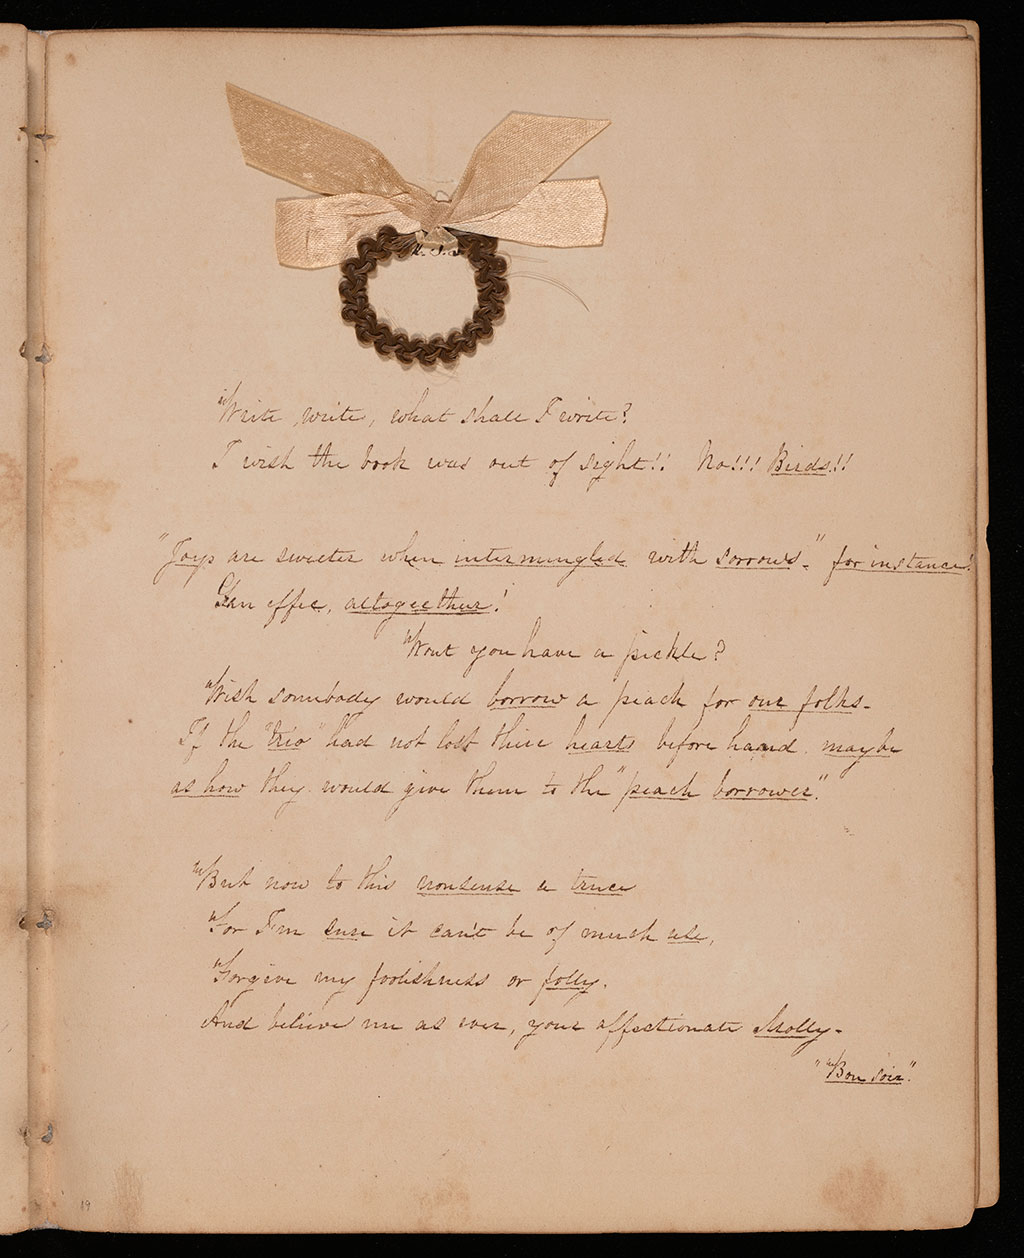 "Write write, what shall I write?
I wish the book was out of sight!! No!!! Birds!!
"Joys are sweeter when intermingled with sorrows." for instance!
effec, altogeether!
"Wont you have a pickle?
"Wish somebody would borrow a peach for our folks-
If the "trio" had not lost their hearts before hand maybe
as how they would give them to the "peach borrower."
"But now to this nonsense a truce
"For I'm sure it can't be of much use,
"Forgive my foolishness or folly.
And believe me as ever, your affectionate Molly-
""Bon soir".
19